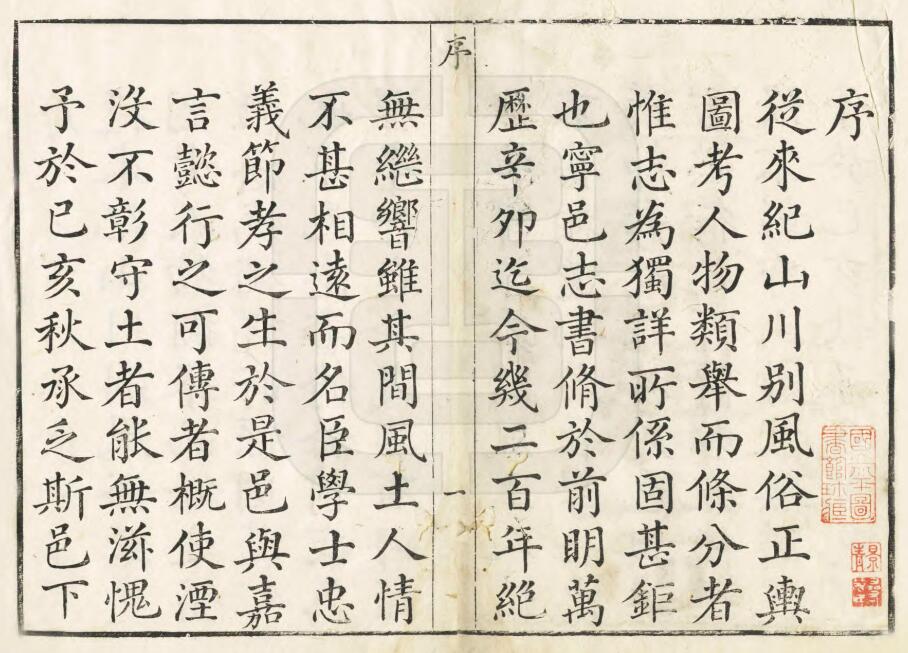 序
從來紀山川別風俗正輿
圖考人物類舉而條分者
惟志為獨詳所係固甚鉅
也寧邑志書脩於前明萬
歷辛卯迄今幾二百年絕
序
一
無繼響雖其間風土人情
不甚相遠而名臣學士忠
義節孝之生於是邑與嘉
言懿行之可傳者概使湮
沒不彰守土者能無滋愧
予於己亥秋承乏斯邑下